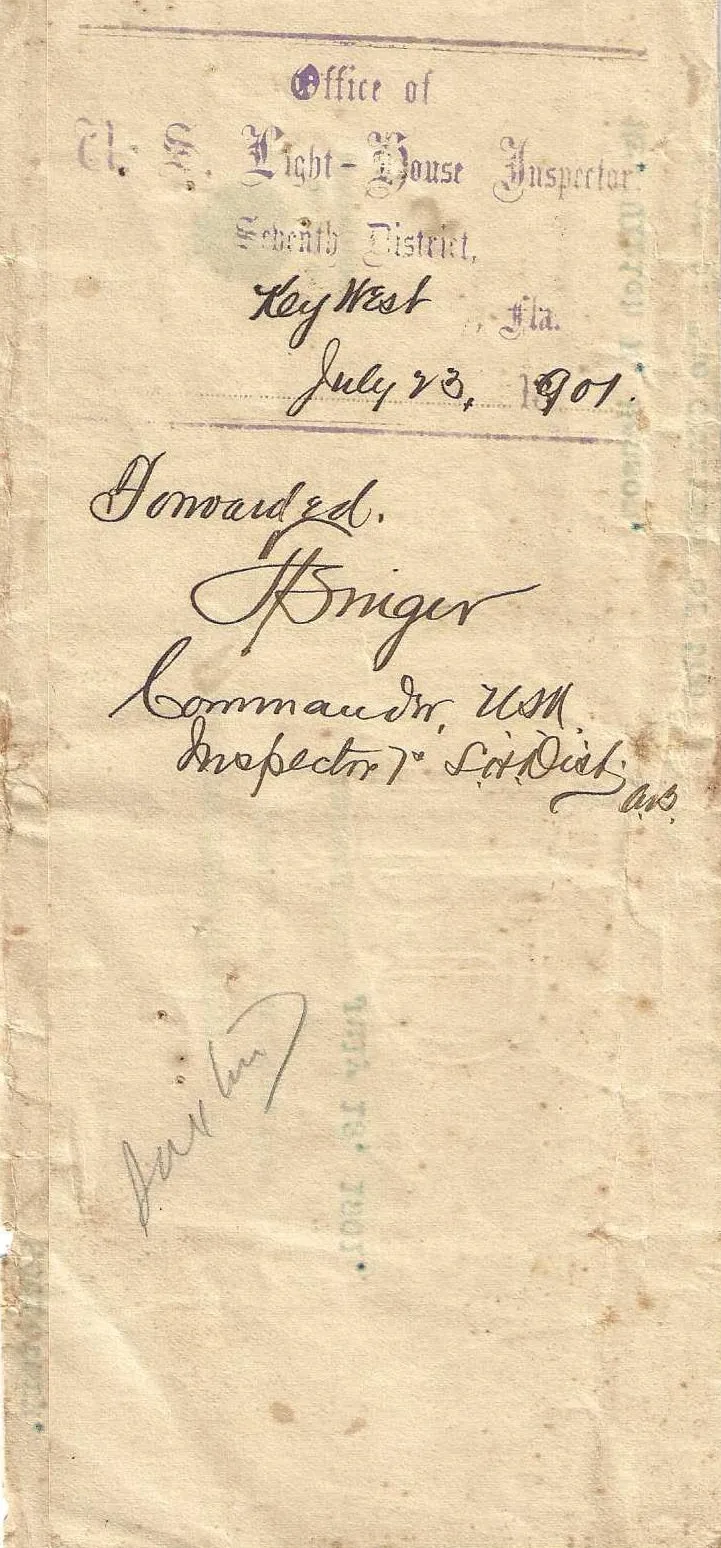 Office of
U. S. Light-House Inspector
Seventh District,
Key West, Fla.
July 23, 1901.
Forwarded.
Commander, USN.
Inspector 7" L.H. Dist.